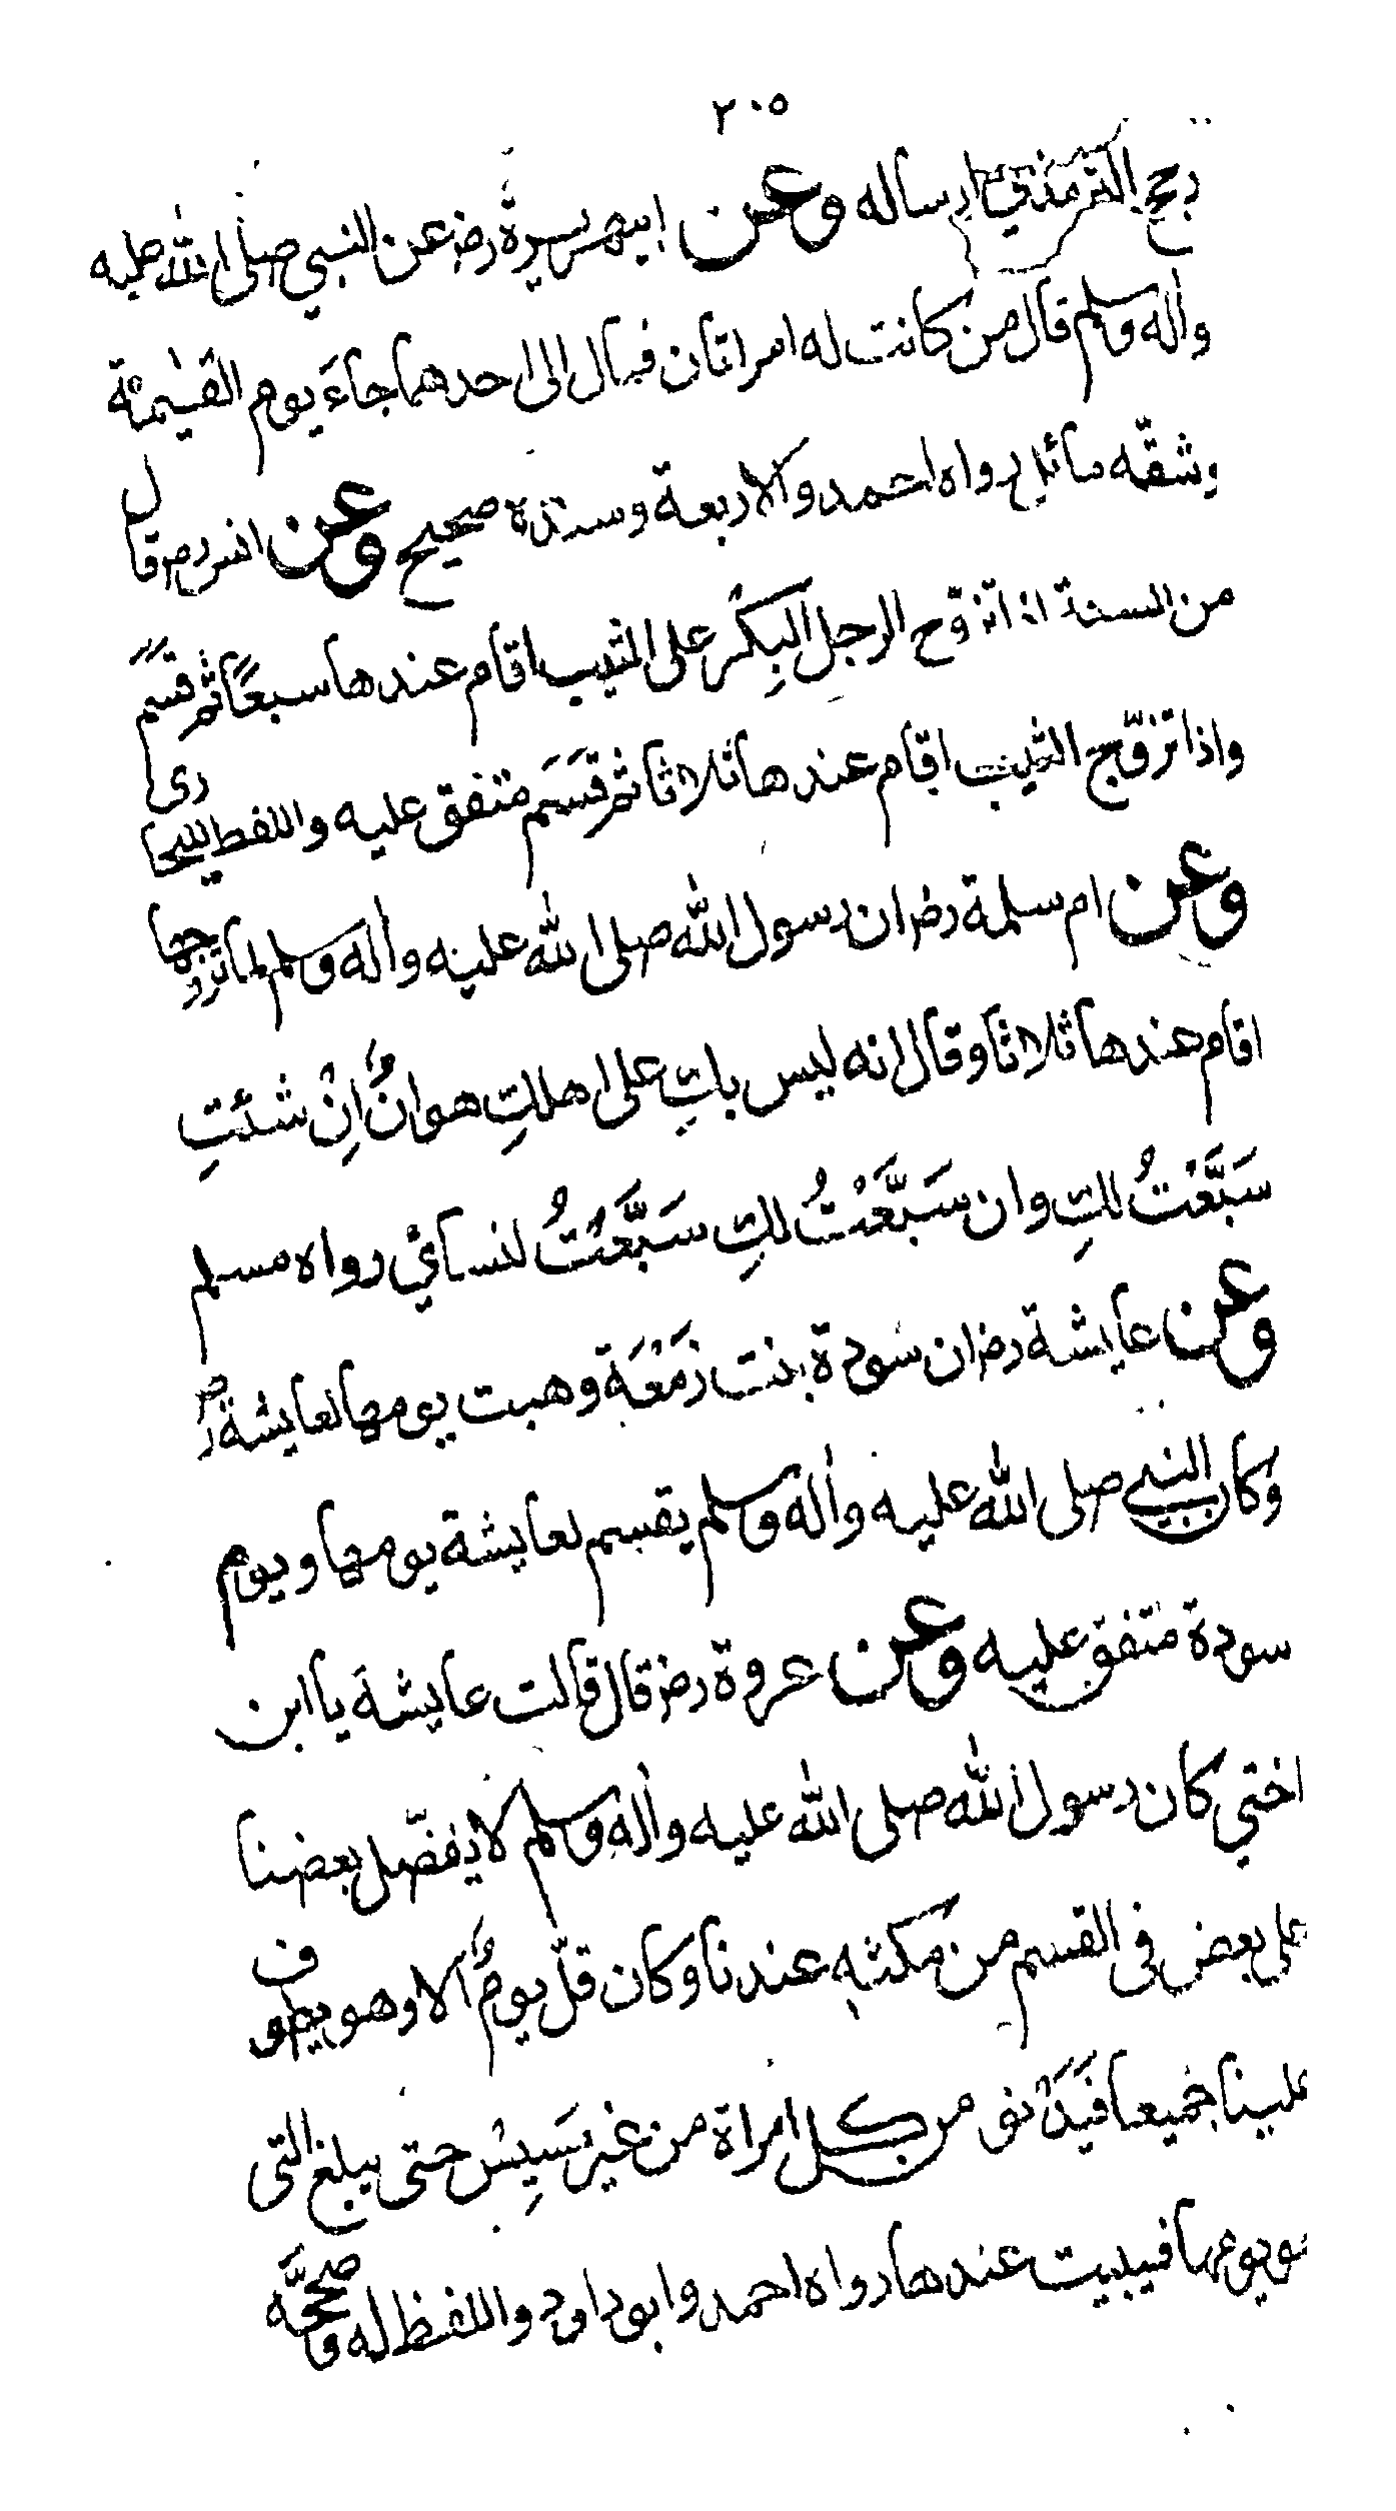 ٢٠٥
رجح الترمذي ارساله وعن ابيهريرة رضعن النبي صلى الله عليه
واٰله وسلم قال من كانت له امراتان فمال الى احدهما جاءَ يوم القيٰمة
وشقّه مائل رواه احمد والاربعة وسنده صحيح وعن انس رض قال
من السنة اذا تزوّج الرجل البِكْر على الثيب اقام عندها سبعًا ثم قسَم
واذا تزوّج الثيب اقام عندها ثلاثا ثم قَسَم متفق عليه واللفظ للبخاري
وعن ام سلمة رض ان رسول الله صلى الله عليه واٰله وسلم لما تزوجها
اقام عندها ثلاثا وقال انه ليس بكِ على اهلكِ هوانٌ اِنْ شئتِ
سَبَّعْتُ لكِ وان سَبَّعْتُ لكِ سَبَّعْتُ لنسائي رواه مسلم
وعن عايشة رض ان سودة بنت زَمْعَة وهبت يومها لعايشة رض
وكان النبي صلى الله عليه واٰله وسلم يقسم لعايشة يومها ويوم
سودة متفق عليه وعن عروة رض قال قالت عايشة يا ابن
اختي كان رسول الله صلى الله عليه واٰله وسلم لا يفضّل بعضنا
على بعض في القسم من مكثه عندنا وكان قلّ يومٌ الا وهو يطوف
علينا جميعا فيَدْنو من كل امراة من غير مَسِيْس حتى يبلغ التى
هو يومها فيبيت عندها رواه احمد وابو داود واللفظ له وصححّه